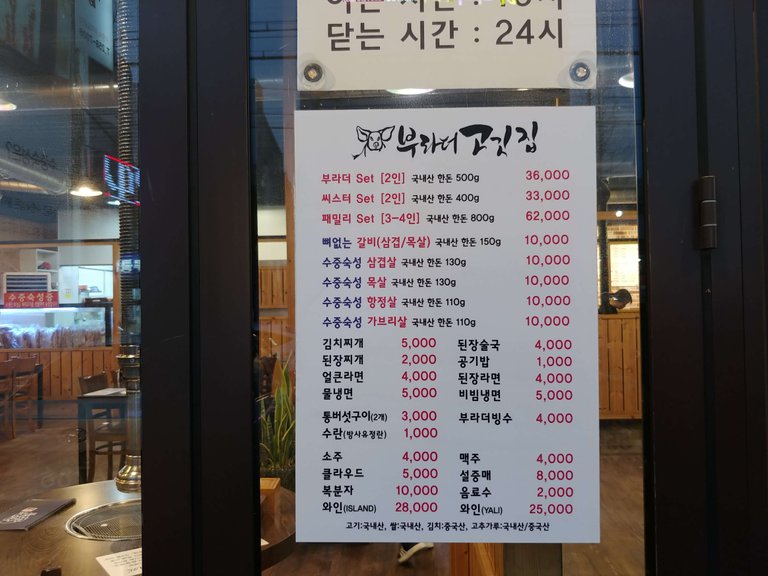 닫는 시간 : 24시
부라더 고깃집
부라더 Set [2인] 국내산 한돈 500g 36,000
씨스터 Set [2인] 국내산 한돈 400g 33,000
패밀리 Set [3-4인] 국내산 한돈 800g 62,000
뼈없는 갈비(삼겹/목살) 국내산 한돈 150g 10,000
수중숙성 삼겹살 국내산 한돈 130g 10,000
수중숙성 목살 국내산 한돈 130g 10,000
수중숙성 항정살 국내산 한돈 110g 10,000
수중숙성 가브리살 국내산 한돈 110g 10,000
김치찌개 5,000 된장술국 4,000
된장찌개 2,000 공기밥 1,000
얼큰라면 4,000 된장라면 4,000
물냉면 5,000 비빔냉면 5,000
통버섯구이(2개) 3,000 부라더빙수 4,000
수란(방사유정란) 1,000
소주 4,000 맥주 4,000
클라우드 5,000 설중매 8,000
복분자 10,000 음료수 2,000
와인(ISLAND) 28,000 와인(YALI) 25,000
고기:국내산, 쌀:국내산, 김치:중국산, 고추가루:국내산/중국산
수중숙성중